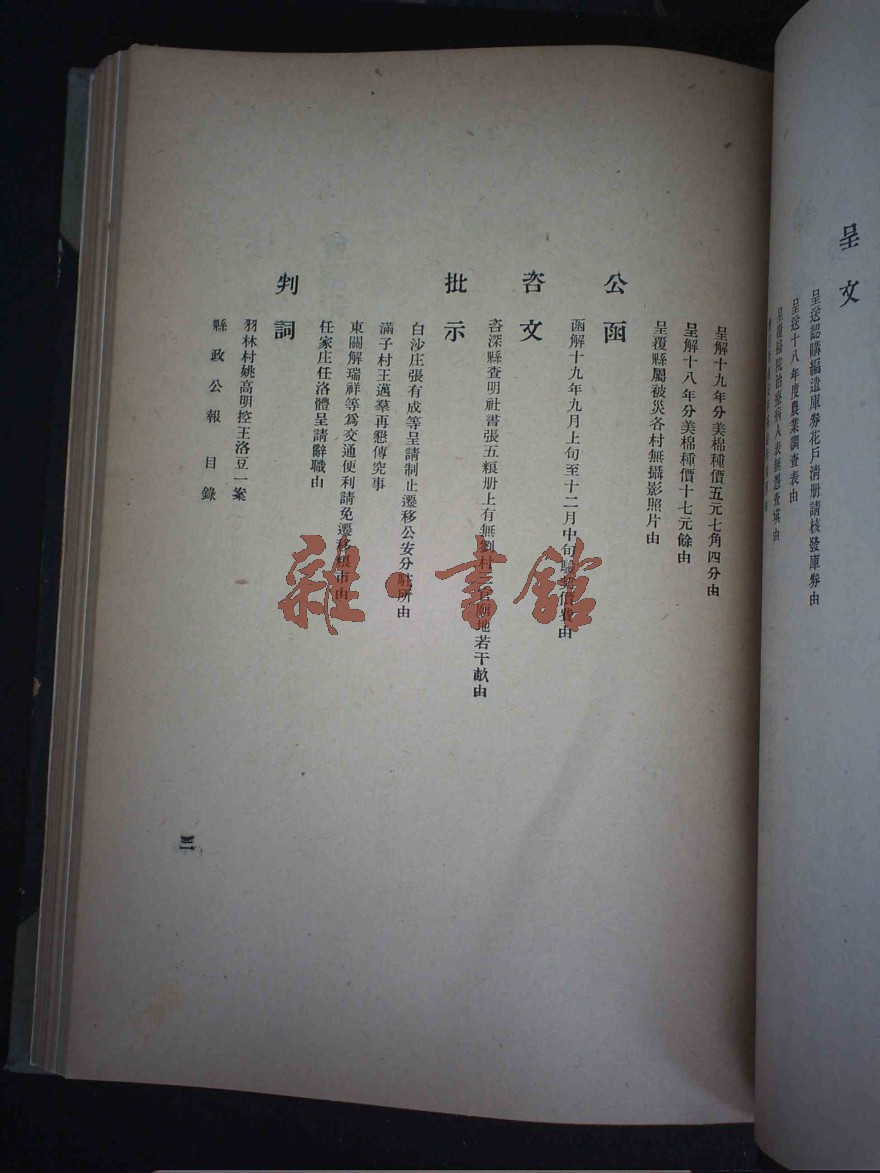 呈文
呈送認購編遣庫券花戶清册請核發庫券由
呈送十八年度農業調查表由
呈解十九年分美棉種價五元七角四分由
呈解十八年分美棉種價十七元餘由
呈覆縣屬被災各村無攝影照片由
公函
函解十九年九月上旬至十二月中旬驗契價費由
咨文
咨深縣查明社書張五粮册上有無劉村三官廟地若干畝由
批示
白沙庄張有成等呈請制止遷移公安分駐所由
滿子村王邁羣再懇傳究事
東關解瑞祥等爲交通便利請免遷移粮市由
任家庄任洛體呈請辭職由
判詞
羽林村姚高明控王洛豆一案
縣政公報 目錄
三
雜·書館